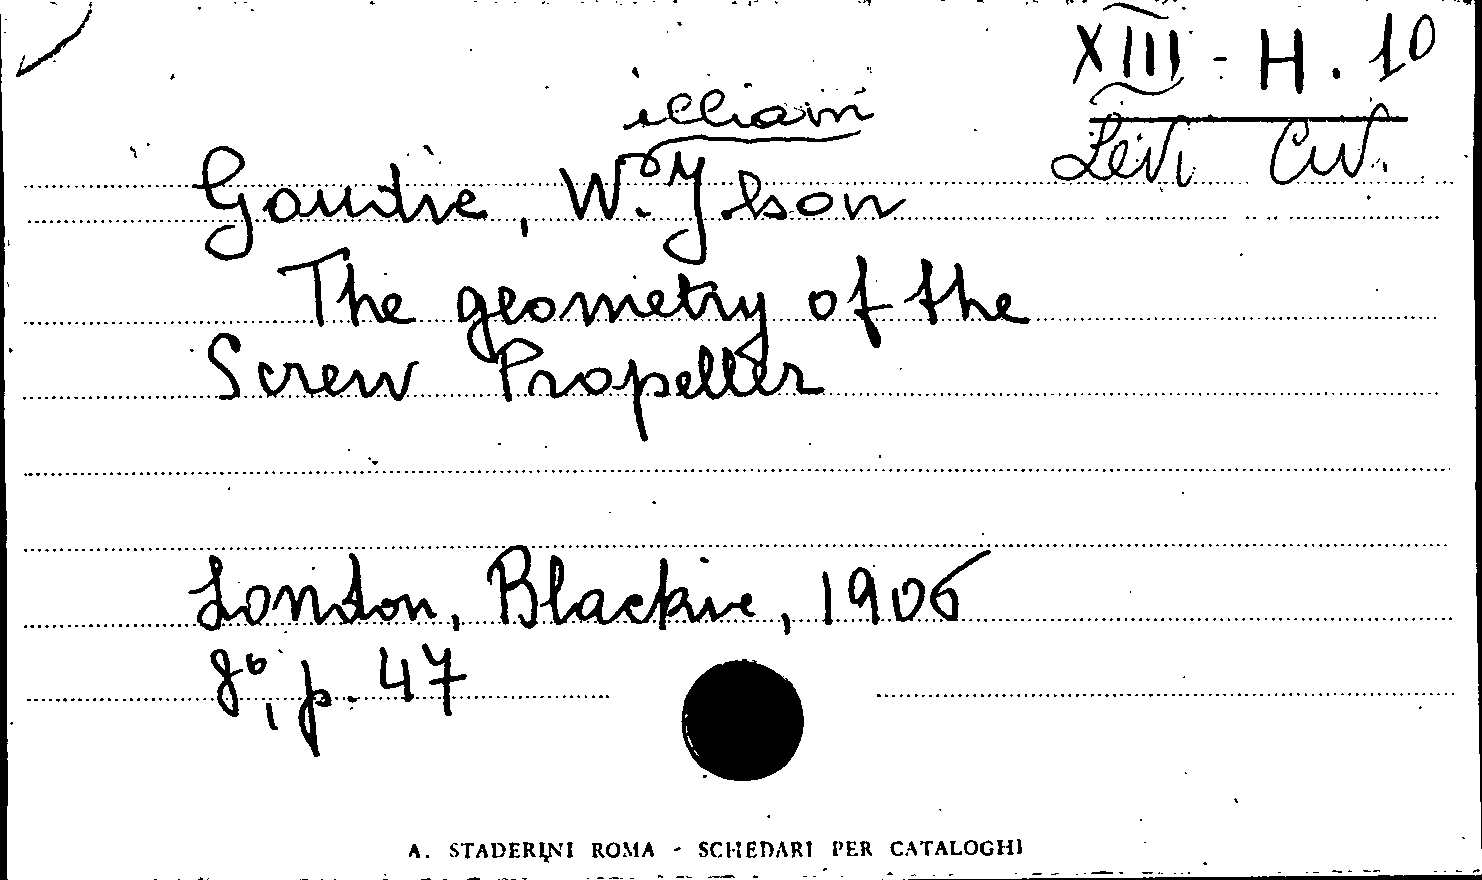 XIII - H. 10
Levi Civ.
illiam
Goudie, W. J.
The geometry of the
Screw Propeller
London, Blackie, 1906
8°, p. 47
A. STADERINI ROMA - SCHEDARI PER CATALOGHI